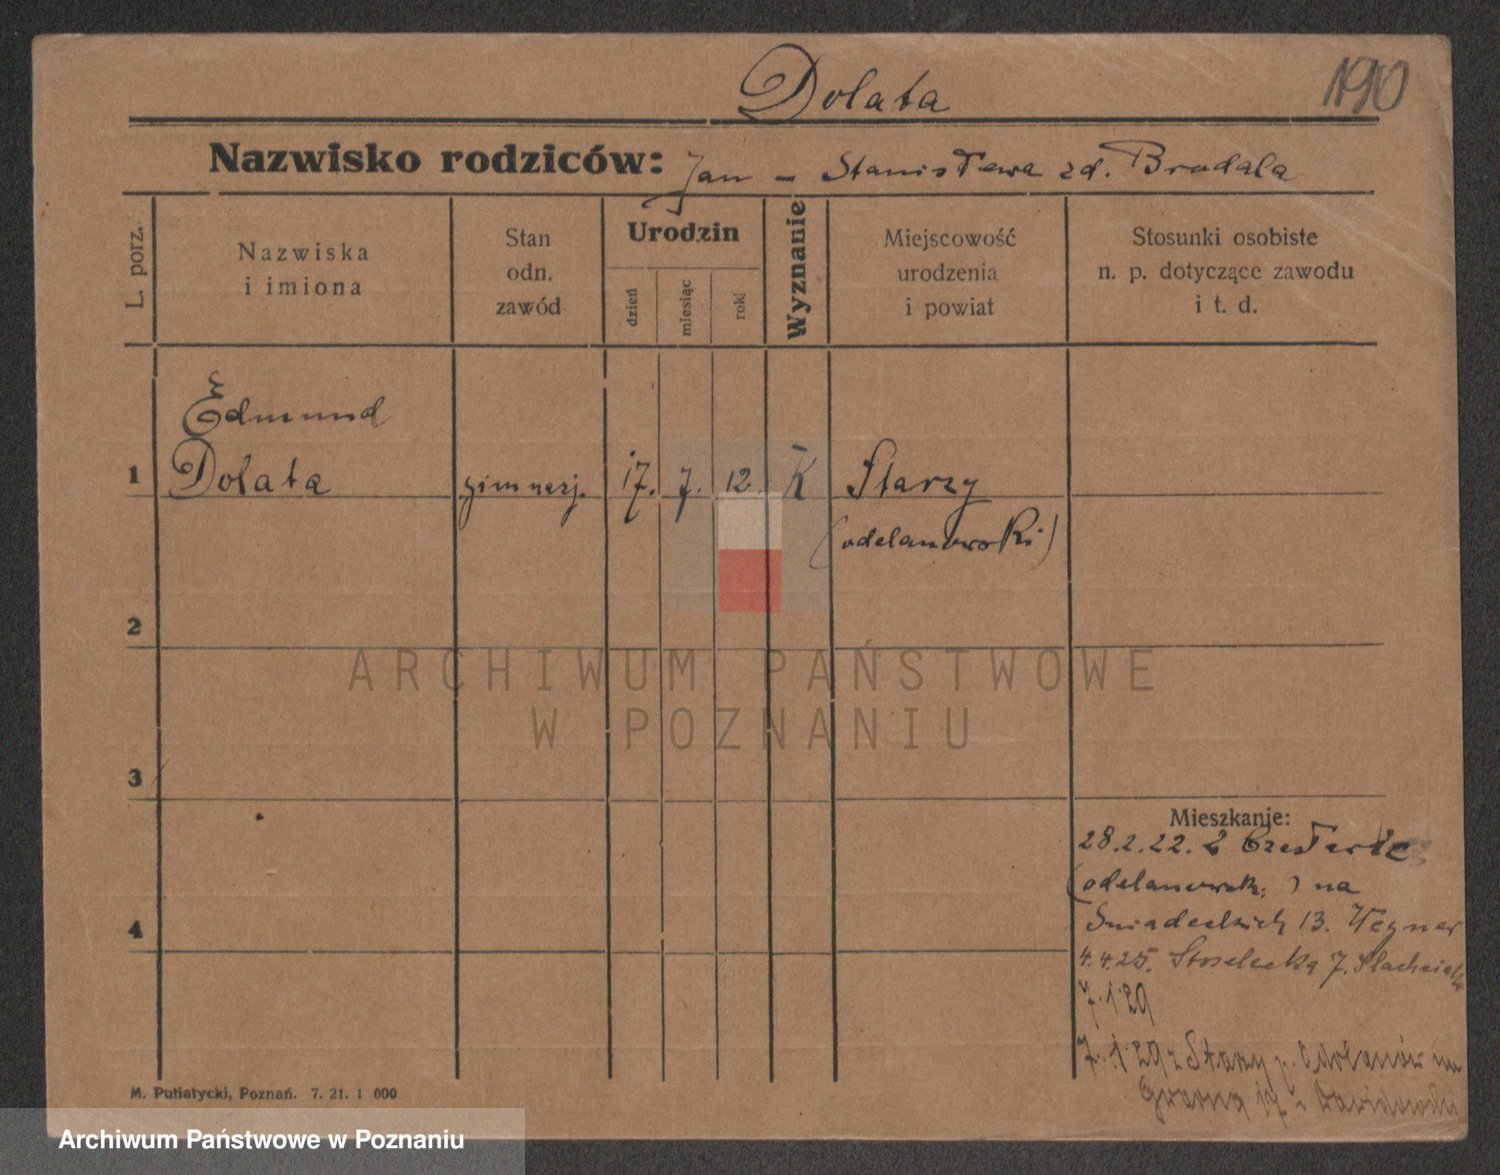 Dolata
1910
Nazwisko rodziców: Jan - Stanisława zd. Brudala
L. porz.
Nazwiska
i imiona
Stan
odn.
zawód
Urodzin
dzień
miesiąc
rok
Wyznanie
Miejscowość
urodzenia
i powiat
Stosunki osobiste
n. p. dotyczące zawodu
i t. d.
Edmund
1 Dolata gimnazj. 17. 7. 12. K Starzy
(odelanowski)
2
ARCHIWUM PAŃSTWOWE
W POZNANIU
3
Mieszkanie:
28.2.22. z
(odelanowsk.) na
4 Śniadeckich 13. Wegner
4.4.25. 7.
7.1.29
7.1.29 z Starzy p. Odolanów na
M. Putiatycki, Poznań. 7. 21. 1 000
Archiwum Państwowe w Poznaniu